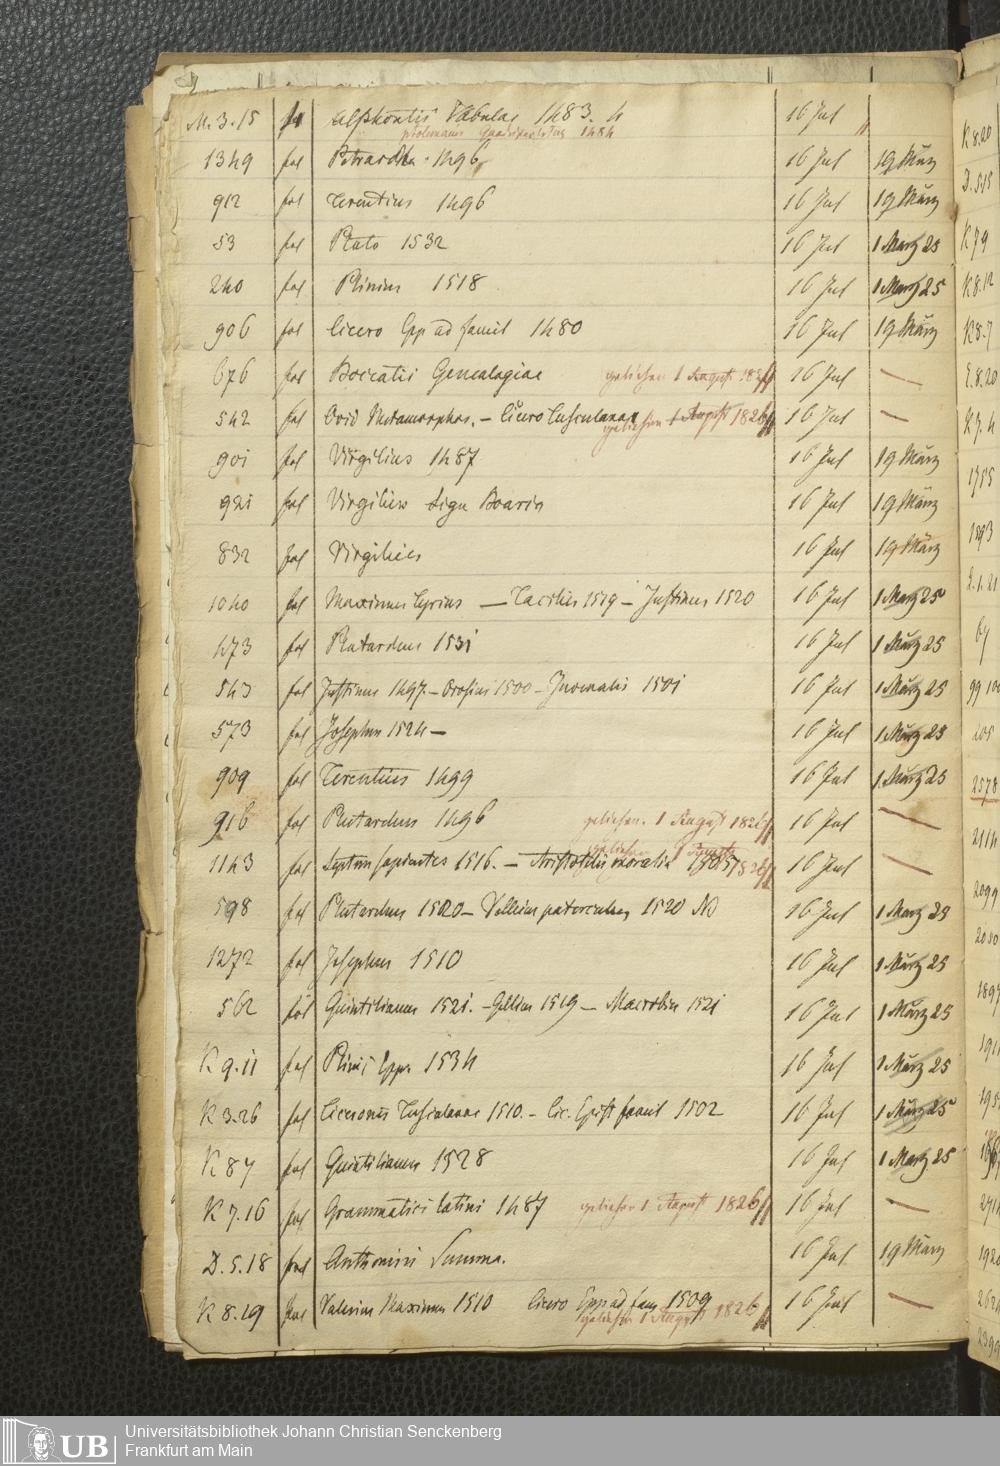 M. 3. 15 fol Alphontii Tabulae 1483. 4 16 Jul
ptolemaeus quadripartitus 1484
1349 fol Petrarcha. 1496 16 Jul 19 März
912 fol Terentius 1496 16 Jul 19 März
53 fol Plato 1532 16 Jul 1 März 25
240 fol Plinius 1518 16 Jul 1 März 25
906 fol Cicero Epp ad famil 1480 16 Jul 19 März
676 fol Boccatii Genealogiae geliehen 1 August 1826 16 Jul —
542 fol Ovid Metamorphos. – Cicero Tusculanae geliehen 1 August 1826 16 Jul —
901 fol Virgilius 1487 16 Jul 19 März
921 fol Virgilius 16 Jul 19 März
832 fol Virgilius 16 Jul 19 März
1040 fol Maximus Tyrius — Tacitus 1519 – Justinus 1520 16 Jul 1 März 25
473 fol Plutarchus 1531 16 Jul 1 März 25
543 fol Justinus 1497. – Orosius 1500 – Juvenalis 1501 16 Jul 1 März 25
573 fol Josephus 1524 – 16 Jul 1 März 25
909 fol Terentius 1499 16 Jul 1 März 25
916 fol Plutarchus 1496 geliehen. 1 August 1826 16 Jul —
1143 fol Septem sapientes 1516. – Aristotelis moralia 1505 geliehen 1 August 1826 16 Jul —
598 fol Plutarchus 1520 – Velleius paterculus 1520 16 Jul 1 März 25
1272 fol Josephus 1510 16 Jul 1 März 25
562 fol Quintilianus 1521. – Gellius 1519 – Macrobius 1521 16 Jul 1 März 25
K 9. 11 fol Plinii Epp. 1534 16 Jul 1 März 25
K 3. 26 fol Ciceronis Tusculanae 1510. – Cic. Epist famil 1502 16 Jul 1 März 25
K 87 fol Quintilianus 1528 16 Jul 1 März 25
K 7. 16 fol Grammatici latini 1487 geliehen 1 August 1826 16 Jul —
D. 5. 18 fol Anthonini Summa. 16 Jul 19 März
K 8. 19 fol Valerius Maximus 1510 Cicero Epp ad fam 1509 16 Jul —
geliehen 1 August 1826
K 8. 20
D. 5. 15
K 7 9
K 8. 12
K 8. 7
E. 8. 20
K 7. 4
1755
1593
2578
2114
2099
2080
UB
Universitätsbibliothek Johann Christian Senckenberg
Frankfurt am Main